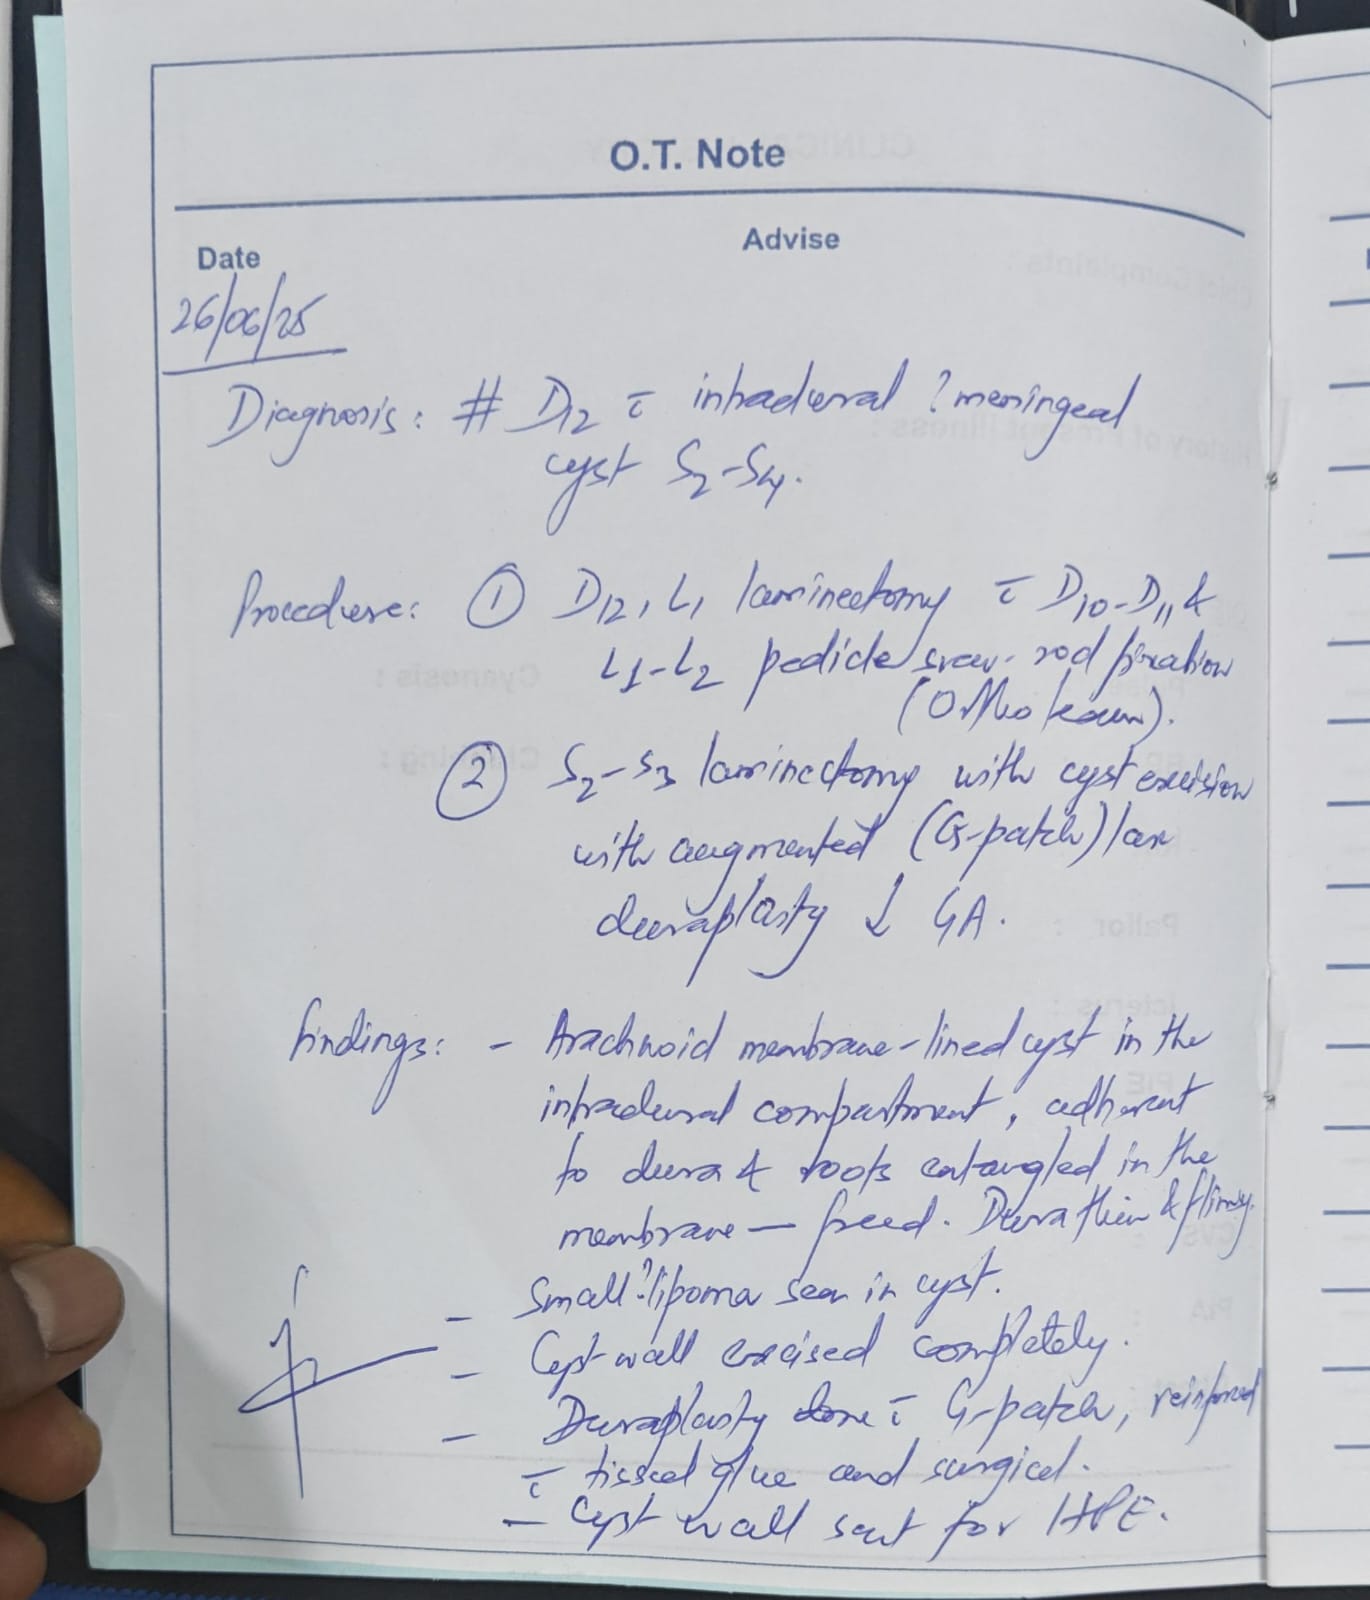 O.T. Note
Date
Advise
26/06/25
Diagnosis: # D12 c̄ intradural ? meningeal
cyst S2-S4.
Procedure: ① D12, L1 laminectomy c̄ D10-D11 &
L1-L2 pedicle screw-rod fixation
(Ortho team).
② S2-S3 laminectomy with cyst excision
with augmented (G-patch)
duraplasty ↓ GA.
Findings: - Arachnoid membrane-lined cyst in the
intradural compartment, adherent
to dura & roots entangled in the
membrane — freed. Dura thin & flimsy.
- Small ? lipoma seen in cyst.
- Cyst wall excised completely.
- Duraplasty done c̄ G-patch, reinforced
c̄ tisseel glue and surgicel.
- Cyst wall sent for HPE.